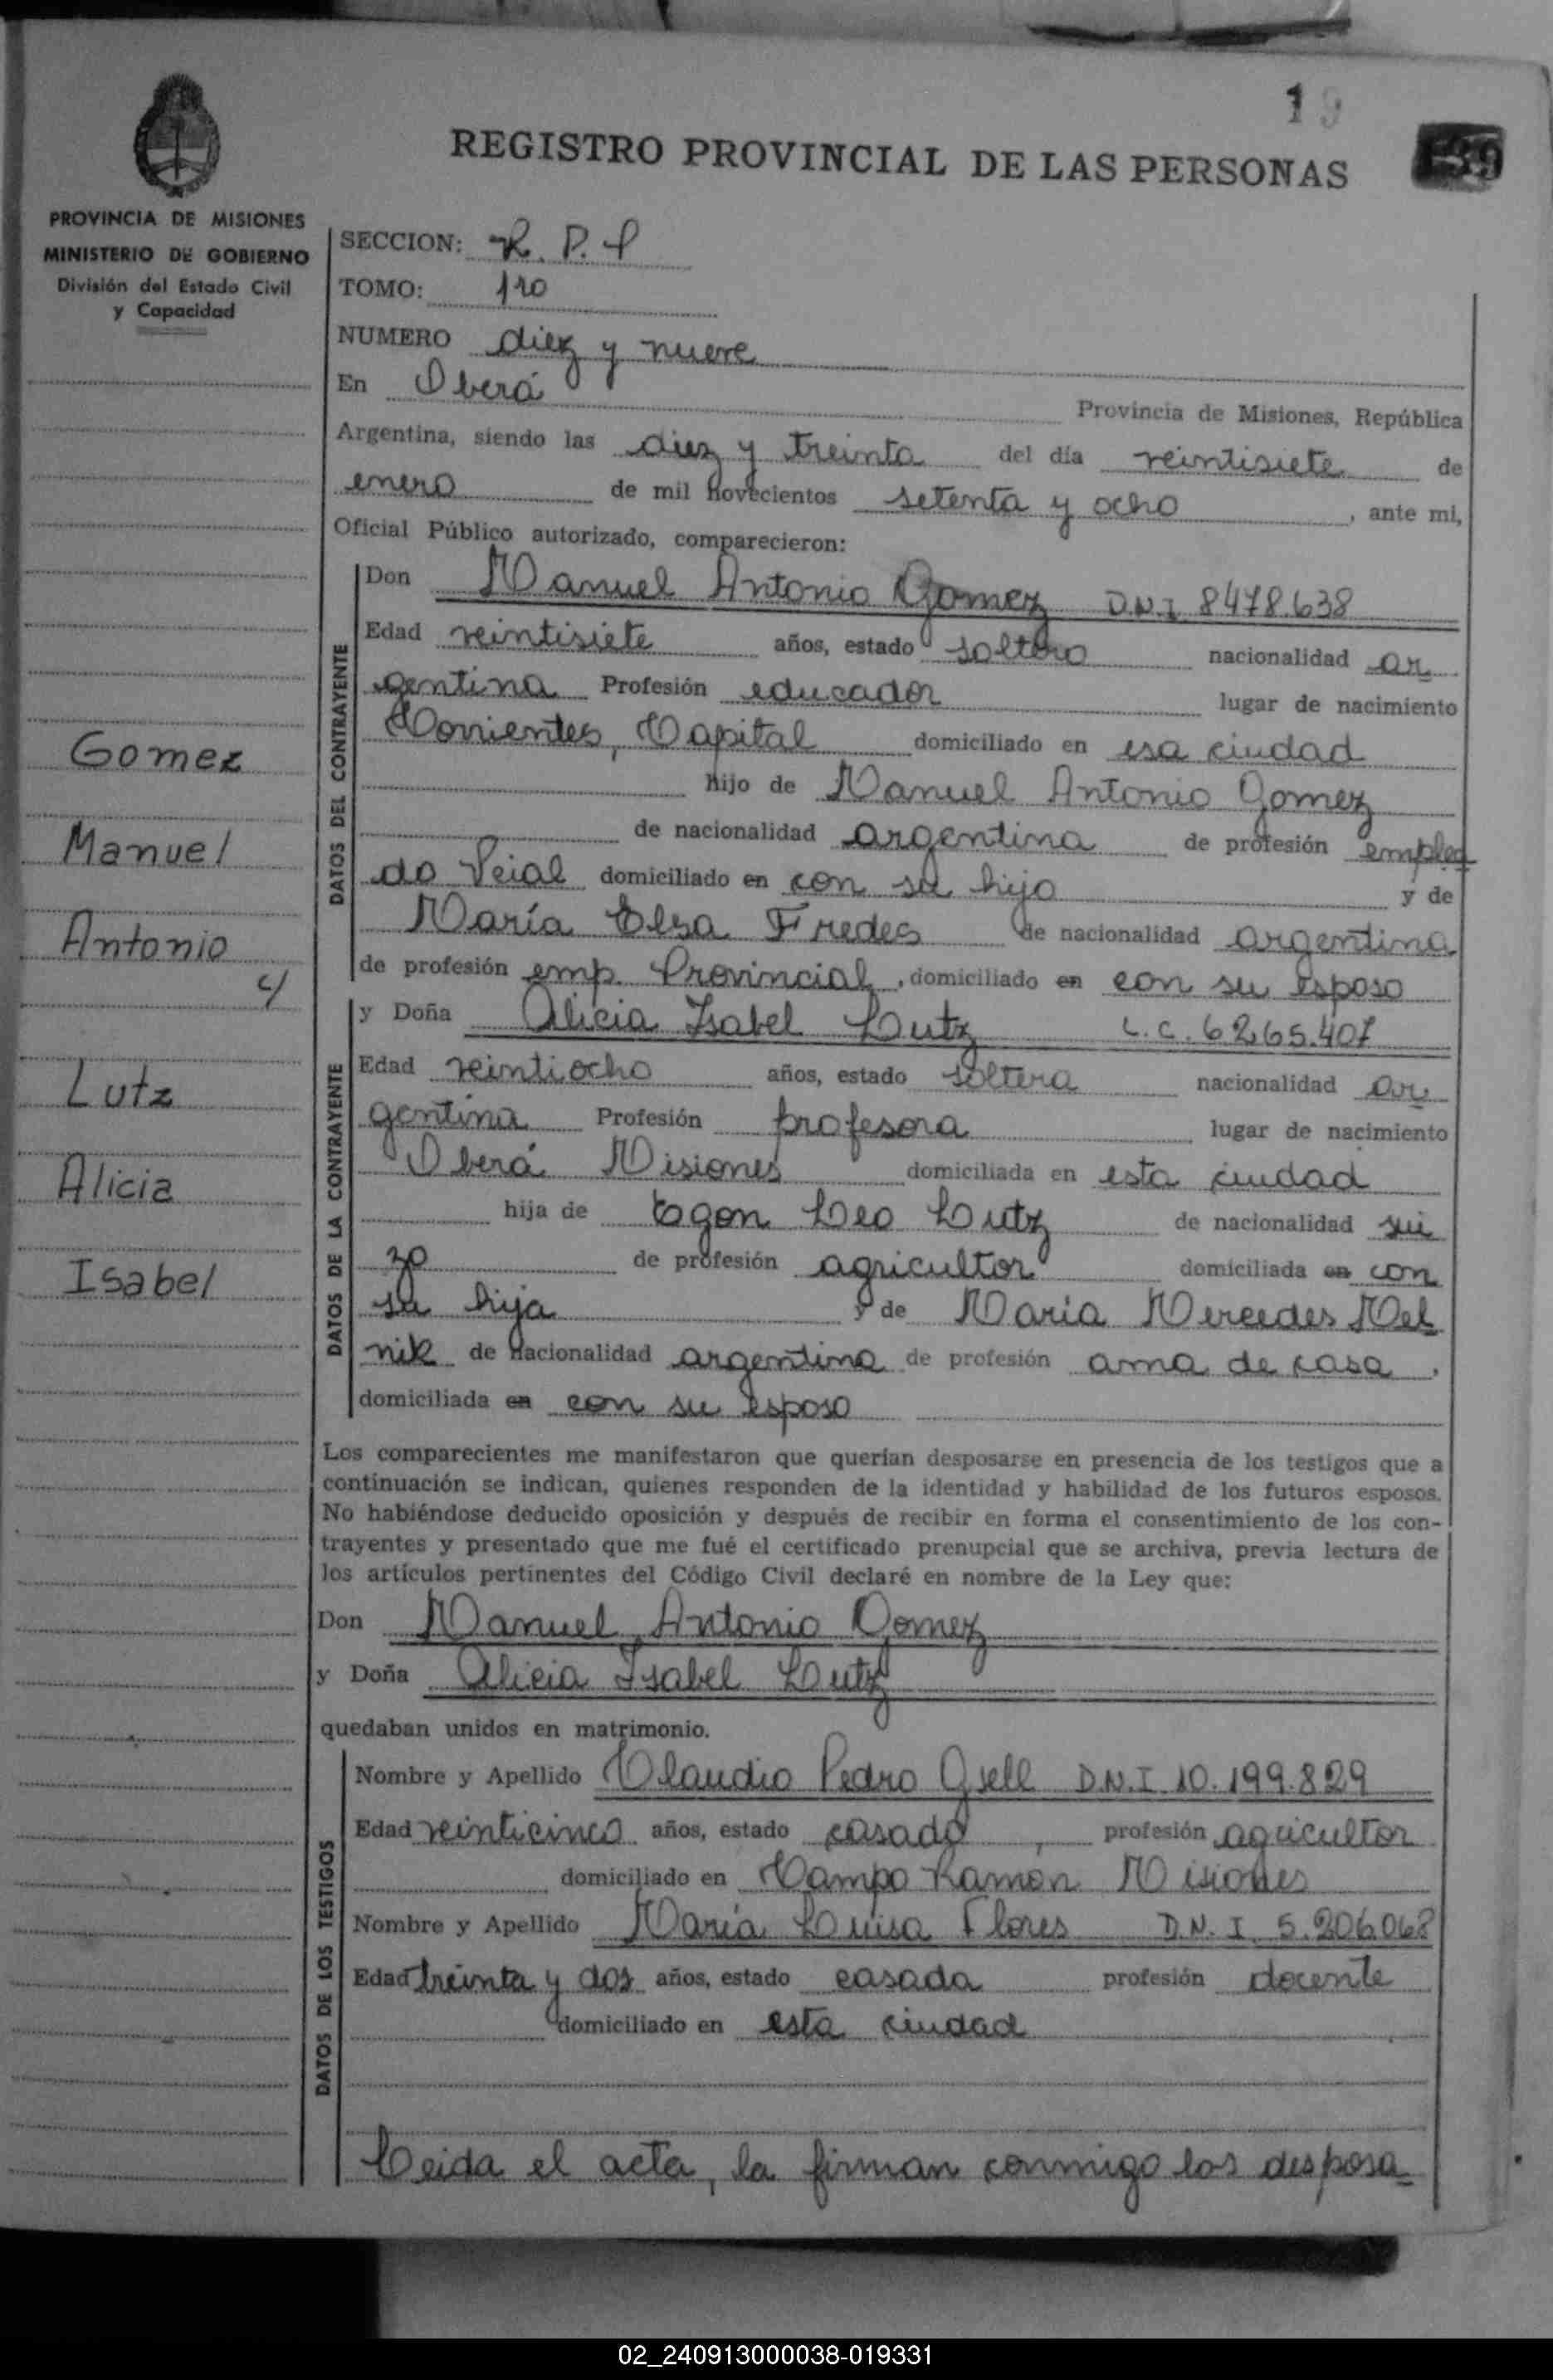 19
REGISTRO PROVINCIAL DE LAS PERSONAS
PROVINCIA DE MISIONES
MINISTERIO DE GOBIERNO
División del Estado Civil
y Capacidad
SECCION: R. P. P
TOMO: 1ro
NUMERO diez y nueve
En Oberá Provincia de Misiones, República
Argentina, siendo las diez y treinta del día veintisiete de
enero de mil novecientos setenta y ocho, ante mi,
Oficial Público autorizado, comparecieron:
DATOS DEL CONTRAYENTE
Don Manuel Antonio Gomez D.N.I 8478.638
Edad veintisiete años, estado soltero nacionalidad ar
gentina Profesión educador lugar de nacimiento
Corrientes, Capital domiciliado en esa ciudad
hijo de Manuel Antonio Gomez
de nacionalidad argentina de profesión emplea
do Veial domiciliado en con su hijo y de
María Elsa Fredes de nacionalidad argentina
de profesión emp. Provincial, domiciliado en con su esposo
DATOS DE LA CONTRAYENTE
y Doña Alicia Isabel Lutz L.C. 6.265.407
Edad veintiocho años, estado soltera nacionalidad ar
gentina Profesión profesora lugar de nacimiento
Oberá Misiones domiciliada en esta ciudad
hija de Egon Leo Lutz de nacionalidad sui
zo de profesión agricultor domiciliada en con
su hija y de María Mercedes Mel
nik de nacionalidad argentina de profesión ama de casa,
domiciliada en con su esposo
Gomez
Manuel
Antonio
y
Lutz
Alicia
Isabel
Los comparecientes me manifestaron que querían desposarse en presencia de los testigos que a
continuación se indican, quienes responden de la identidad y habilidad de los futuros esposos.
No habiéndose deducido oposición y después de recibir en forma el consentimiento de los con-
trayentes y presentado que me fué el certificado prenupcial que se archiva, previa lectura de
los artículos pertinentes del Código Civil declaré en nombre de la Ley que:
Don Manuel Antonio Gomez
y Doña Alicia Isabel Lutz
quedaban unidos en matrimonio.
DATOS DE LOS TESTIGOS
Nombre y Apellido Claudio Pedro Gsell D.N.I 10.199.829
Edad veinticinco años, estado casado, profesión agricultor
domiciliado en Campo Ramon Misiones
Nombre y Apellido María Luisa Flores D.N.I. 5.206.068
Edad treinta y dos años, estado casada profesión docente
domiciliado en esta ciudad
Leida el acta, la firman conmigo los desposa
02_240913000038-019331